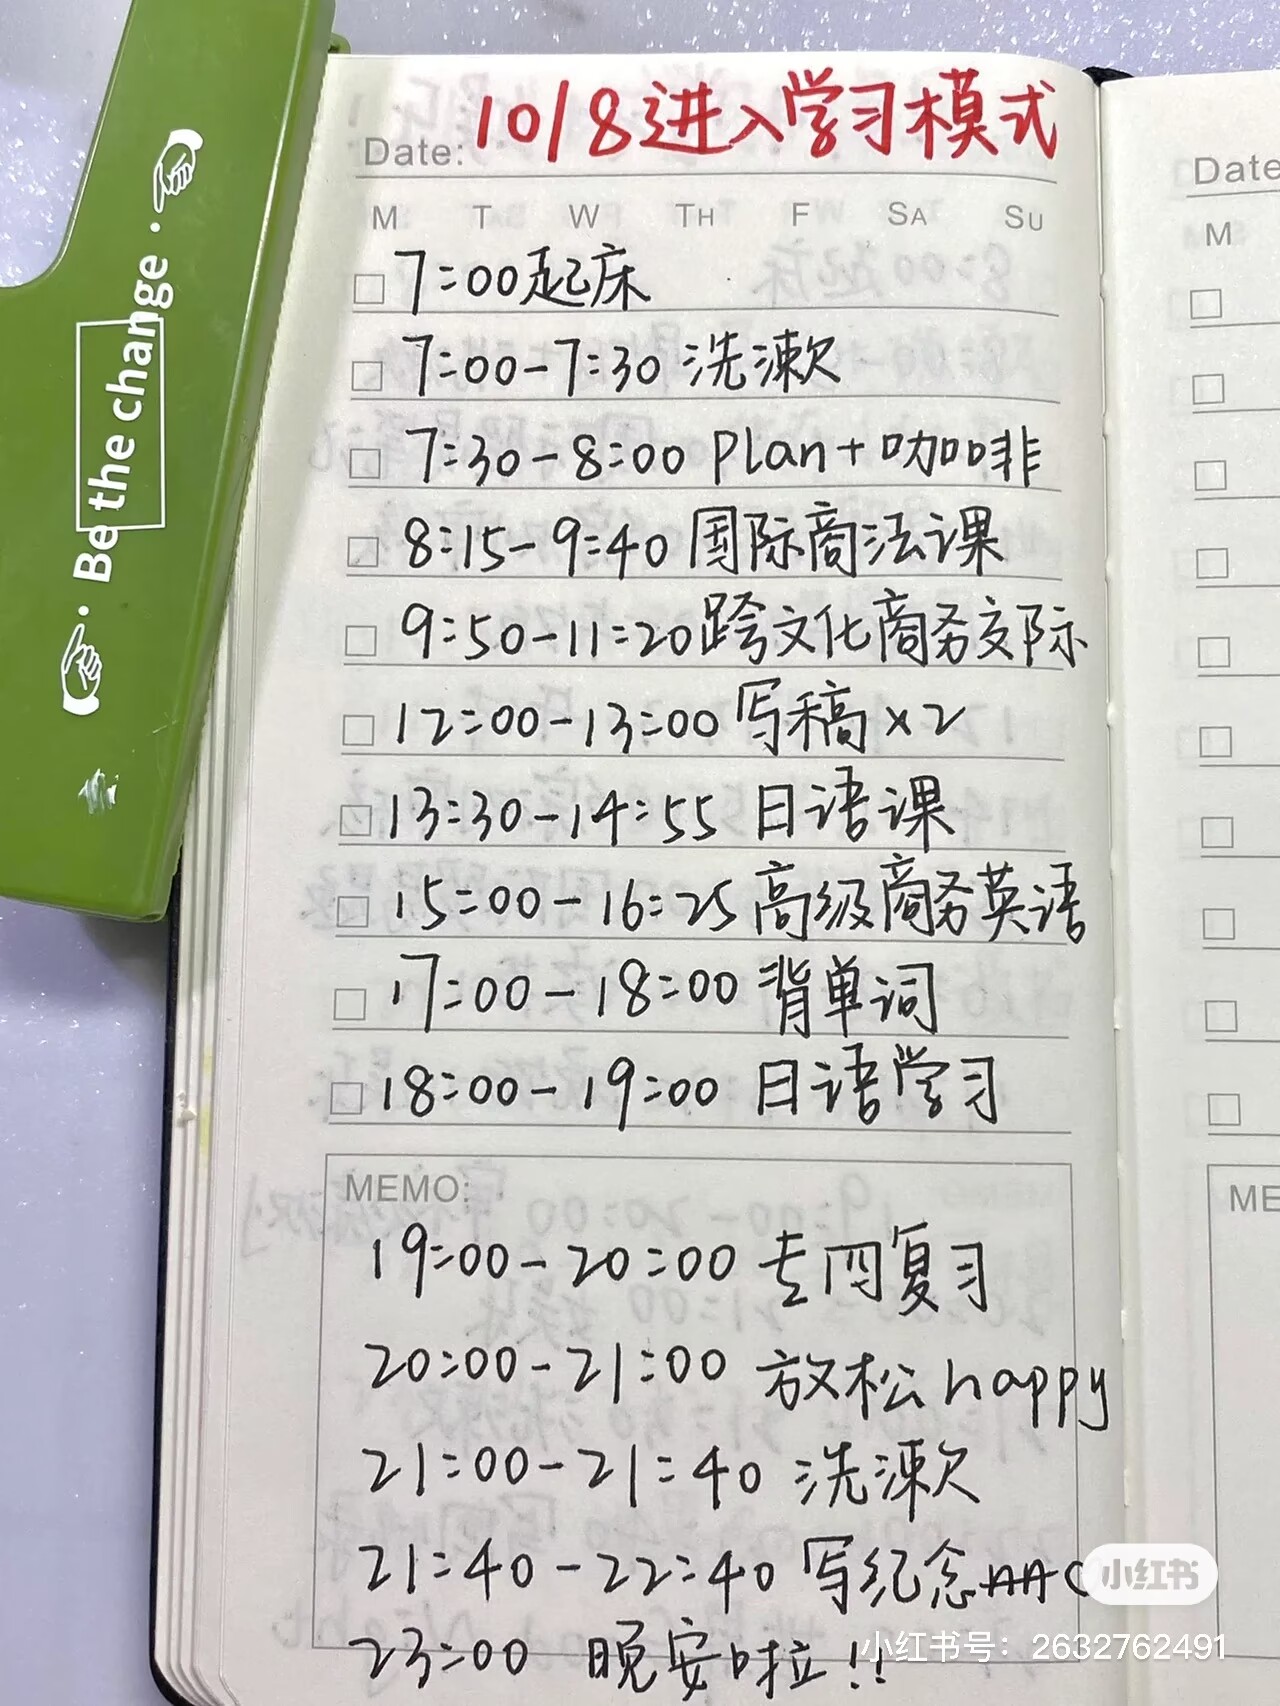 Be the change
10/8进入学习模式
Date:
M T W TH F SA SU
7:00起床
7:00-7:30 洗漱
7:30-8:00 Plan+咖啡
8:15-9:40 国际商法课
9:50-11:20跨文化商务交际
12:00-13:00 写稿×2
13:30-14:55 日语课
15:00-16:25 高级商务英语
17:00-18:00 背单词
18:00-19:00 日语学习
MEMO:
19:00-20:00 专四复习
20:00-21:00 放松happy
21:00-21:40 洗漱
21:40-22:40 写纪念
23:00 晚安啦!!
Date
M
ME
小红书
小红书号：2632762491